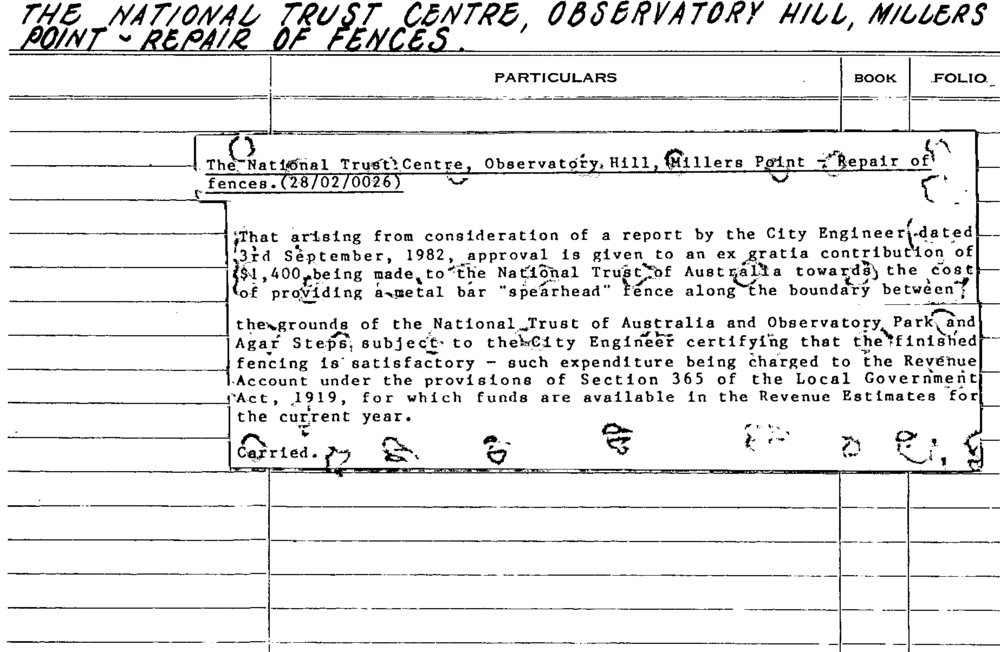 THE NATIONAL TRUST CENTRE, OBSERVATORY HILL, MILLERS
POINT - REPAIR OF FENCES.
PARTICULARS BOOK FOLIO
The National Trust Centre, Observatory Hill, Millers Point - Repair of
fences.(28/02/0026)
That arising from consideration of a report by the City Engineer dated
3rd September, 1982, approval is given to an ex gratia contribution of
$1,400 being made to the National Trust of Australia towards the cost
of providing a metal bar "spearhead" fence along the boundary between
the grounds of the National Trust of Australia and Observatory Park and
Agar Steps subject to the City Engineer certifying that the finished
fencing is satisfactory - such expenditure being charged to the Revenue
Account under the provisions of Section 365 of the Local Government
Act, 1919, for which funds are available in the Revenue Estimates for
the current year.
Carried.